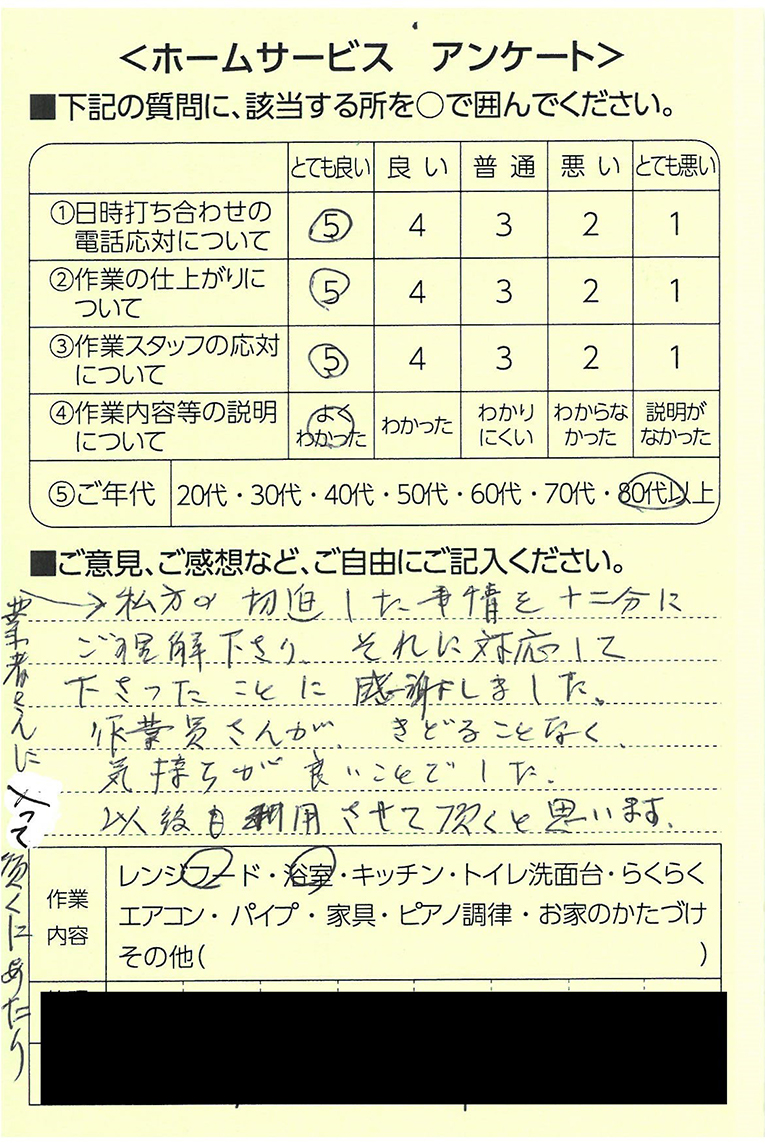 <ホームサービス　アンケート>
■下記の質問に、該当する所を○で囲んでください。
とても良い 良い 普通 悪い とても悪い
①日時打ち合わせの
電話応対について 5 4 3 2 1
②作業の仕上がりに
ついて 5 4 3 2 1
③作業スタッフの応対
について 5 4 3 2 1
④作業内容等の説明
について よく
わかった わかった わかり
にくい わからな
かった 説明が
なかった
⑤ご年代 20代・30代・40代・50代・60代・70代・80代以上
■ご意見、ご感想など、ご自由にご記入ください。
業者さんに入って頂くにあたり
→私方の切迫した事情を十二分に
ご理解下さり、それに対応して
下さったことに感謝しました。
作業員さんが、きどることなく、
気持ちが良いことでした。
以後も利用させて頂くと思います。
作業
内容
レンジフード・浴室・キッチン・トイレ洗面台・らくらく
エアコン・パイプ・家具・ピアノ調律・お家のかたづけ
その他(　)